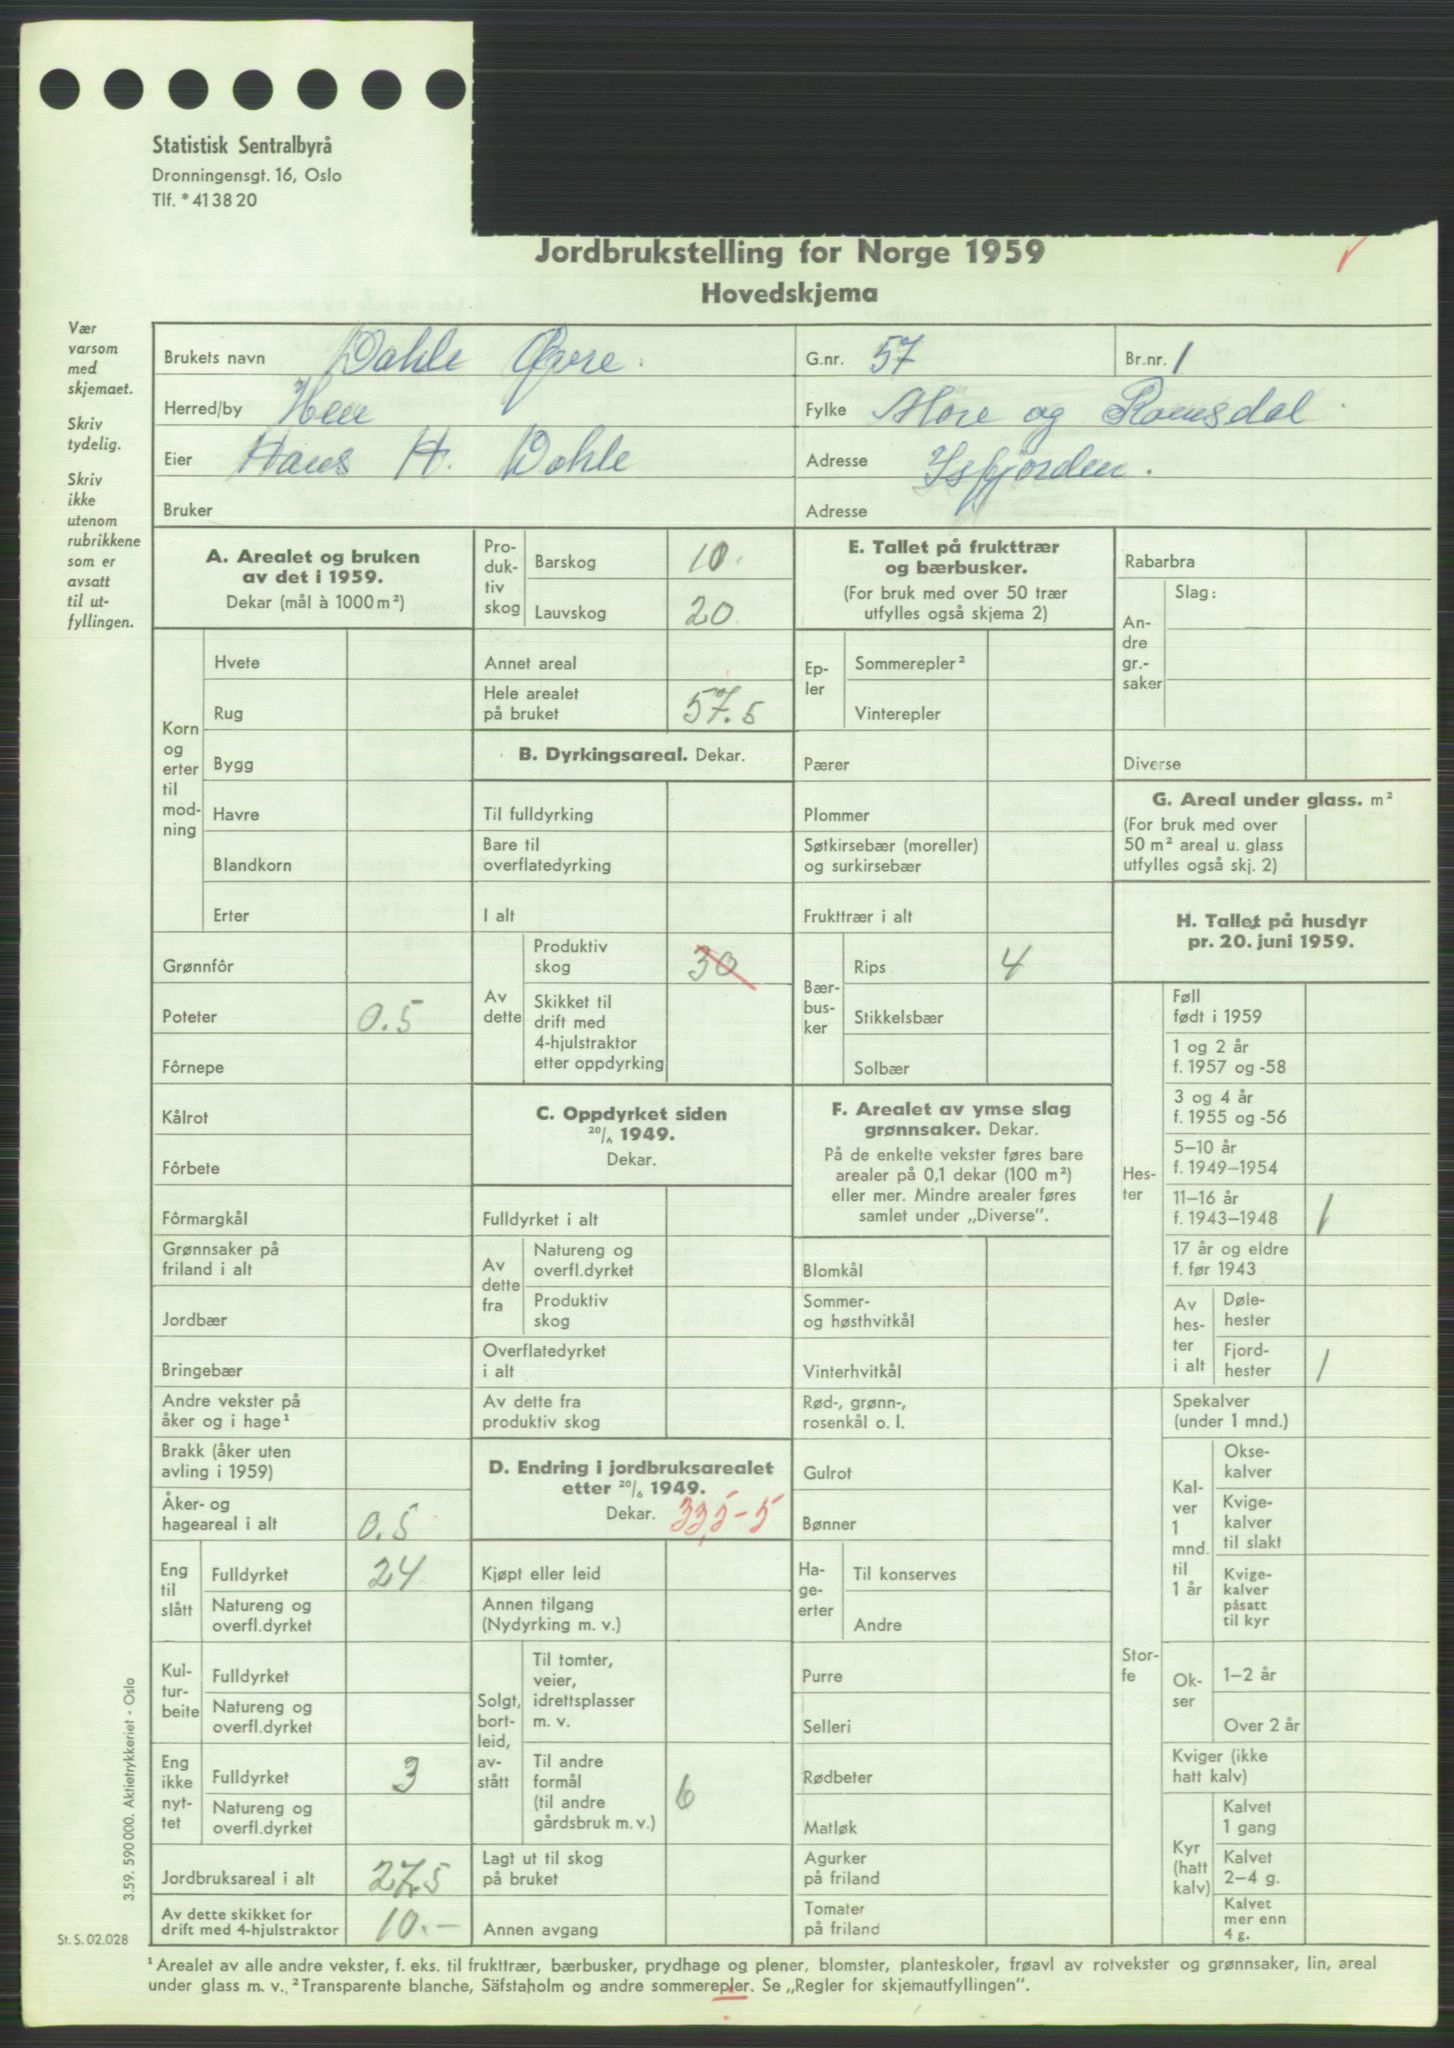 Statistisk Sentralbyrå
Dronningensgt. 16, Oslo
Tlf. * 41 38 20
Jordbrukstelling for Norge 1959
Hovedskjema
Vær
varsom
med
skjemaet.
Skriv
tydelig.
Skriv
ikke
utenom
rubrikkene
som er
avsatt
til ut-
fyllingen.
Brukets navn Dahle Øvre. G.nr. 57 Br.nr. 1
Herred/by Hen Fylke Møre og Romsdal
Eier Hans H. Dahle Adresse Isfjorden.
Bruker Adresse
A. Arealet og bruken
av det i 1959.
Dekar (mål à 1000 m²)
Korn
og
erter
til
mod-
ning
Hvete
Rug
Bygg
Havre
Blandkorn
Erter
Grønnfôr
Poteter 0.5
Fôrnepe
Kålrot
Fôrbete
Fôrmargkål
Grønnsaker på
friland i alt
Jordbær
Bringebær
Andre vekster på
åker og i hage¹
Brakk (åker uten
avling i 1959)
Åker- og
hageareal i alt 0.5
Eng
til
slått
Fulldyrket 24
Natureng og
overfl.dyrket
Kul-
tur-
beite
Fulldyrket
Natureng og
overfl.dyrket
Eng
ikke
nyt-
tet
Fulldyrket 3
Natureng og
overfl.dyrket
Jordbruksareal i alt 27.5
Av dette skikket for
drift med 4-hjulstraktor 10.-
Pro-
duk-
tiv
skog
Barskog 10.
Lauvskog 20
Annet areal
Hele arealet
på bruket 57.5
B. Dyrkingsareal. Dekar.
Til fulldyrking
Bare til
overflatedyrking
I alt
Av
dette
Produktiv
skog 30
Skikket til
drift med
4-hjulstraktor
etter oppdyrking
C. Oppdyrket siden
20/6 1949.
Dekar.
Fulldyrket i alt
Av
dette
fra
Natureng og
overfl.dyrket
Produktiv
skog
Overflatedyrket
i alt
Av dette fra
produktiv skog
D. Endring i jordbruksarealet
etter 20/6 1949.
Dekar. 33,5-5
Kjøpt eller leid
Annen tilgang
(Nydyrking m. v.)
Solgt,
bort-
leid,
av-
stått
Til tomter,
veier,
idrettsplasser
m. v.
Til andre
formål
(til andre
gårdsbruk m. v.) 6
Lagt ut til skog
på bruket
Annen avgang
E. Tallet på frukttrær
og bærbusker.
(For bruk med over 50 trær
utfylles også skjema 2)
Ep-
ler
Sommerepler²
Vinterepler
Pærer
Plommer
Søtkirsebær (moreller)
og surkirsebær
Frukttrær i alt
Bær-
bus-
ker
Rips 4
Stikkelsbær
Solbær
F. Arealet av ymse slag
grønnsaker. Dekar.
På de enkelte vekster føres bare
arealer på 0,1 dekar (100 m²)
eller mer. Mindre arealer føres
samlet under „Diverse".
Blomkål
Sommer-
og høsthvitkål
Vinterhvitkål
Rød-, grønn-,
rosenkål o. l.
Gulrot
Bønner
Ha-
ge-
erter
Til konserves
Andre
Purre
Selleri
Rødbeter
Matløk
Agurker
på friland
Tomater
på friland
Rabarbra
An-
dre
gr.-
saker
Slag:
Diverse
G. Areal under glass. m²
(For bruk med over
50 m² areal u. glass
utfylles også skj. 2)
H. Tallet på husdyr
pr. 20. juni 1959.
Hes-
ter
Føll
født i 1959
1 og 2 år
f. 1957 og -58
3 og 4 år
f. 1955 og -56
5–10 år
f. 1949–1954
11–16 år
f. 1943–1948 1
17 år og eldre
f. før 1943
Av
hes-
ter
i alt
Døle-
hester
Fjord-
hester 1
Stor-
fe
Spekalver
(under 1 mnd.)
Kal-
ver
1
mnd.
til
1 år
Okse-
kalver
Kvige-
kalver
til slakt
Kvige-
kalver
påsatt
til kyr
Ok-
ser
1–2 år
Over 2 år
Kviger (ikke
hatt kalv)
Kyr
(hatt
kalv)
Kalvet
1 gang
Kalvet
2–4 g.
Kalvet
mer enn
4 g.
3.59. 590 000. Aktietrykkeriet - Oslo
St. S. 02.028
¹ Arealet av alle andre vekster, f. eks. til frukttrær, bærbusker, prydhage og plener, blomster, planteskoler, frøavl av rotvekster og grønnsaker, lin, areal
under glass m. v. ² Transparente blanche, Säfstaholm og andre sommerepler. Se „Regler for skjemautfyllingen".